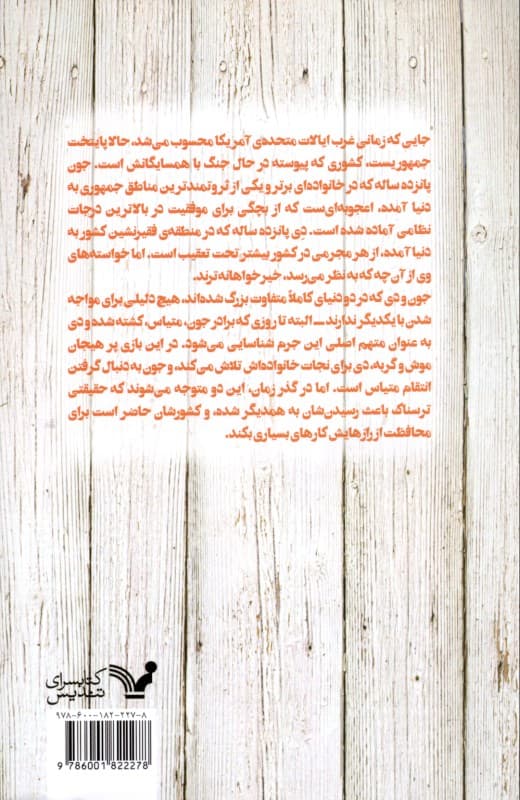 جایی که زمانی غرب ایالات متحده‌ی آمریکا محسوب می‌شد، حالا پایتخت
جمهوریست، کشوری که پیوسته در حال جنگ با همسایگانش است. جون
پانزده ساله که در خانواده‌ای برتر و یکی از ثروتمندترین مناطق جمهوری به
دنیا آمده، اعجوبه‌ای‌ست که از بچگی برای موفقیت در بالاترین درجات
نظامی آماده شده است. دِی پانزده ساله که در منطقه‌ی فقیرنشین کشور به
دنیا آمده، از هر مجرمی در کشور بیشتر تحت تعقیب است. اما خواسته‌های
وی از آن چه که به نظر می‌رسد، خیرخواهانه ترند.
جون و دی که در دو دنیای کاملاً متفاوت بزرگ شده‌اند، هیچ دلیلی برای مواجه
شدن با یکدیگر ندارند ــ البته تا روزی که برادر جون، متیاس، کشته شده و دی
به عنوان متهم اصلی این جرم شناسایی می‌شود. در این بازی پر هیجان
موش و گربه، دی برای نجات خانواده‌اش تلاش می‌کند، و جون به دنبال گرفتن
انتقام متیاس است. اما در گذر زمان، این دو متوجه می‌شوند که حقیقتی
ترسناک باعث رسیدن‌شان به همدیگر شده، و کشورشان حاضر است برای
محافظت از رازهایش کارهای بسیاری بکند.
کتابسرای
تندیس
۹۷۸-۶۰۰-۱۸۲-۲۲۷-۸
9 786001 822278